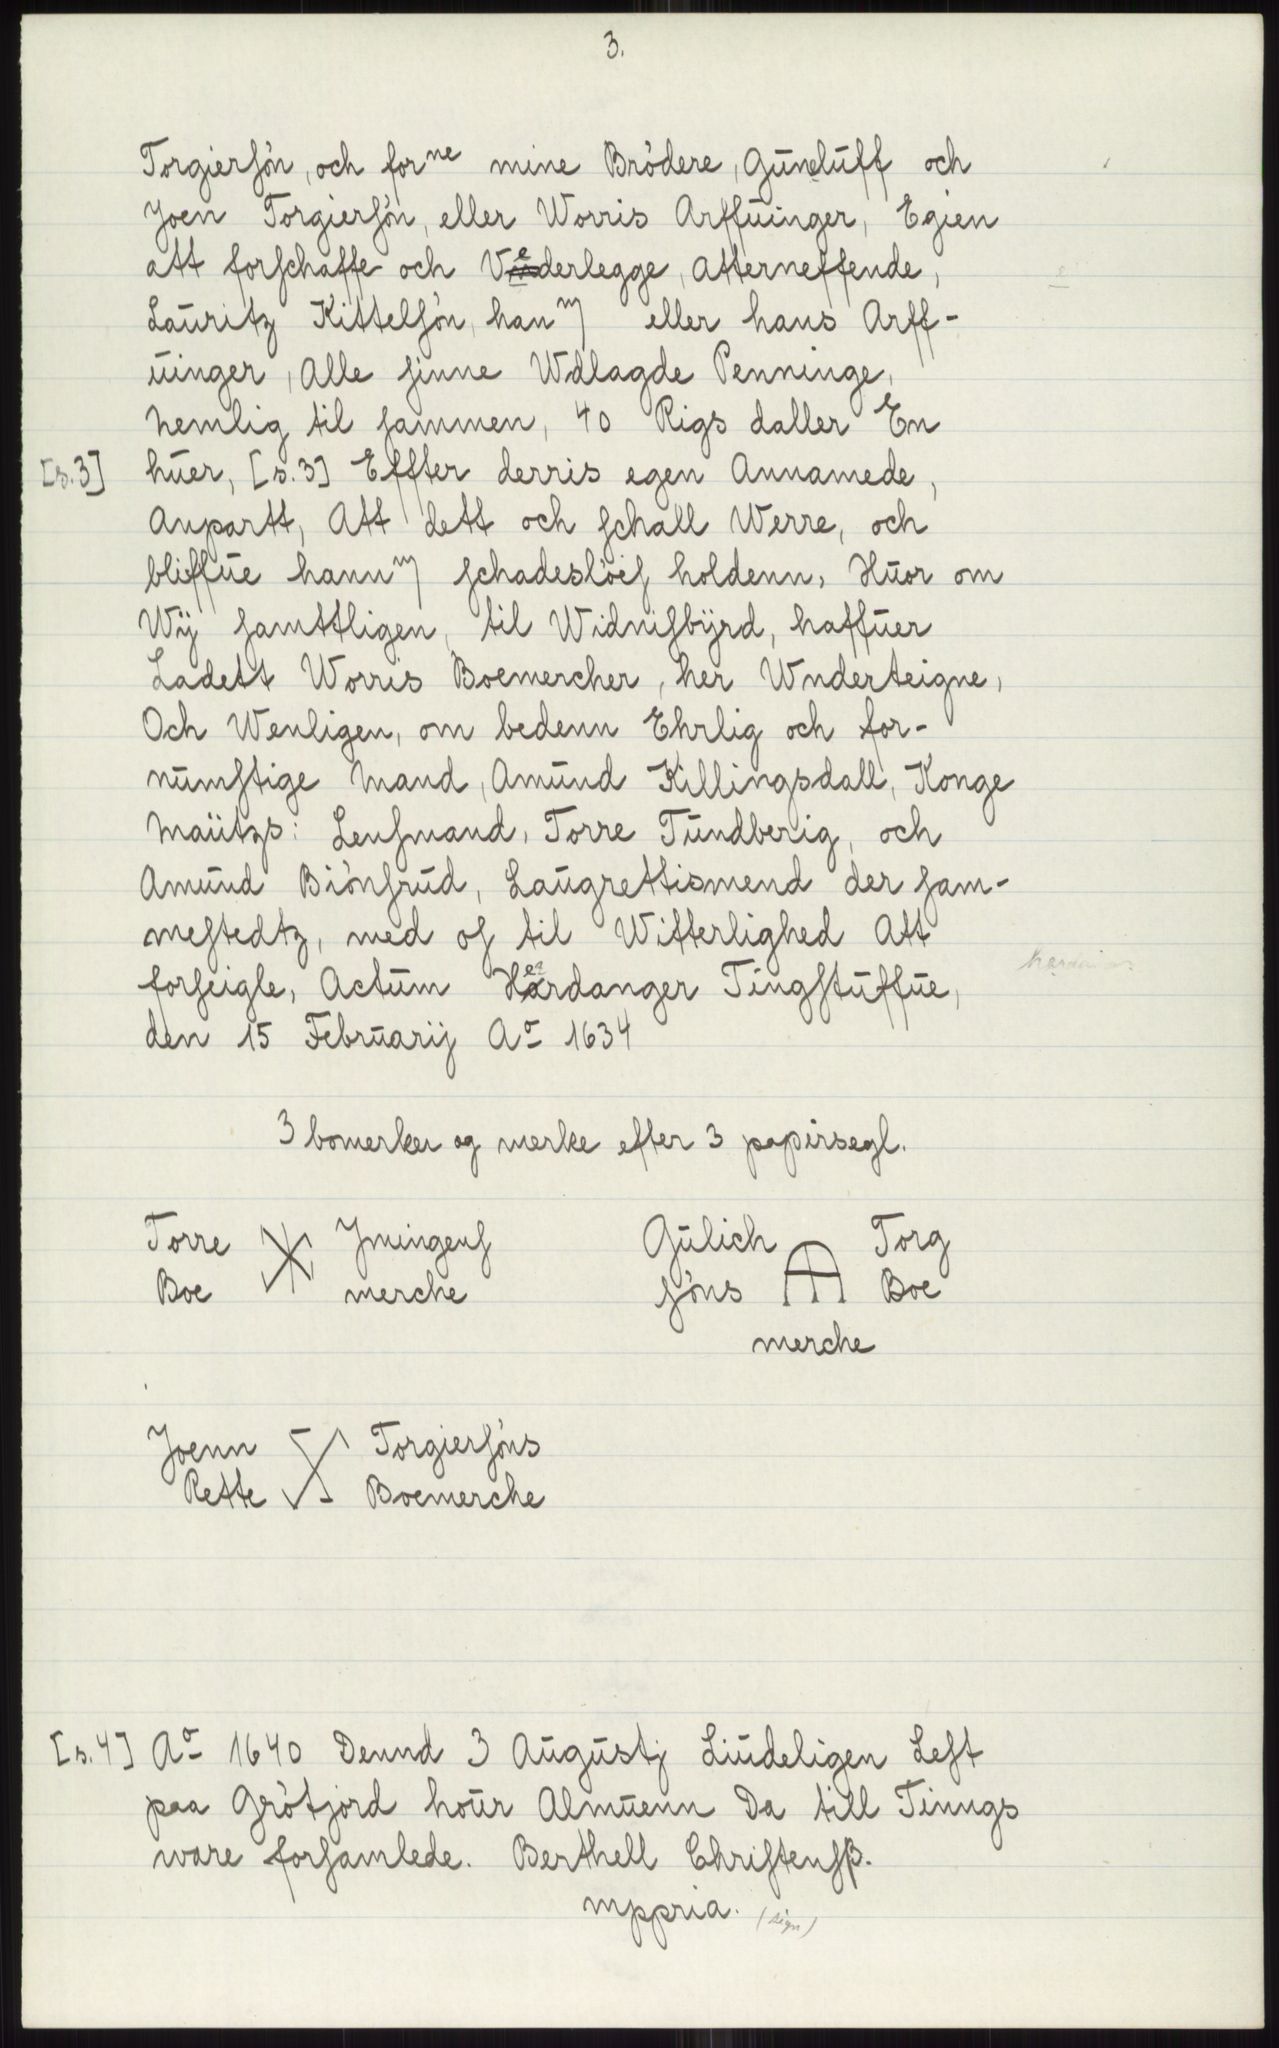 3.
Torgierſön, och for^ne mine Brödere, Gunduff och
Joen Torgierſön, eller Worris Arffuinger, Egien
att forſchaffe och Vederlegge, Atterneffende,
Lauritz Kittelſön, hanᵐ eller hans Arff-
uinger, Alle ſinne Wdlagde Penninge,
Nemlig til ſammen, 40 Rigs daller En
[s.3] huer, [s.3] Effter derris egen Annamede,
Anpartt, Att dett och ſchall Werre, och
bliffue hannᵐ ſchadeslöeſ holdenn, Huor om
Wÿ ſamttligen, til Widniſbÿrd, haffuer
Ladett Worris Boemercher, her Wnderteigne,
Och Wenligen, om bedenn Ehrlig och for-
numftige Mand, Amund Killingsdall, Konge
Maÿtzs: Lenſmand, Torre Tundberig, och
Amund Biönſrud, Laugrettismend der ſam-
meſtedtz, med oſ til Witterlighed Att
forſeigle, Actum Herdanger Tingſtuffue,
den 15 Februarij Aº 1634
3 bomerker og merke efter 3 papirsegl.
Torre Jmingenſ
Boe merche
Gulich Torg
ſöns Boe
merche
Joenn Torgierſöns
Rette Boemerche
[s.4] Aº 1640 Dennd 3 Auguſtj Liudeligen Leſt
paa Grötjord hour Almuenn Da till Tinngs
ware forſamlede. Berthell Chriſtenſß.
mppria. (sign)